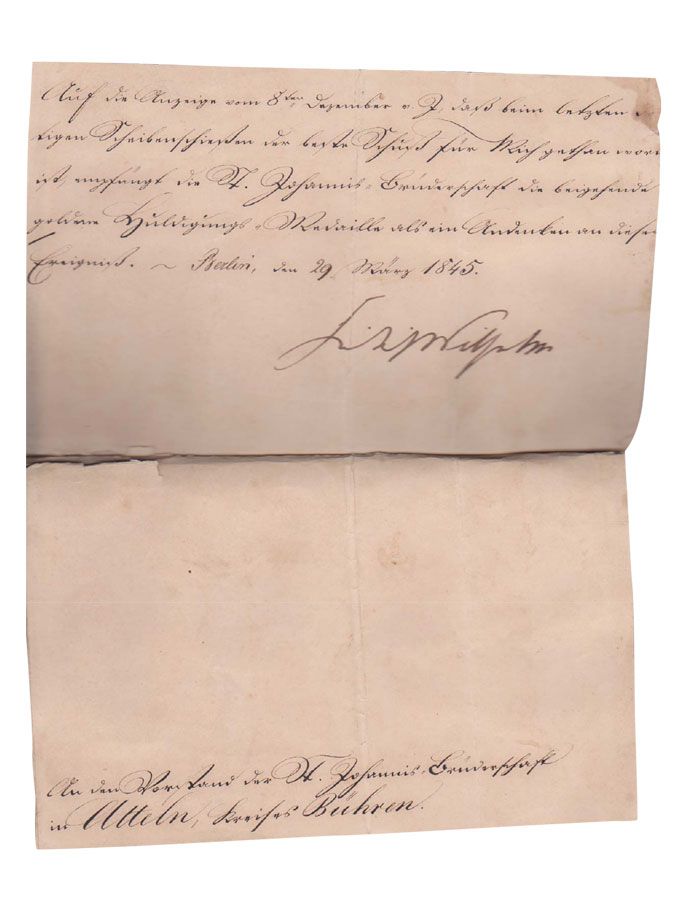 Auf die Anzeige vom 8ten Dezember v. J. daß beim letzten
tigen Scheibenschießen der beste Schuß für Mich gethan wor
ist, empfängt die St. Johannis-Brüderschaft die beigehende
goldene Huldigungs-Medaille als ein Andenken an dieses
Ereigniß. ~ Berlin, den 29 März 1845.
Wilhelm
An den Vorstand der St. Johannis-Brüderschaft
in Atteln, Kreises Bühren.